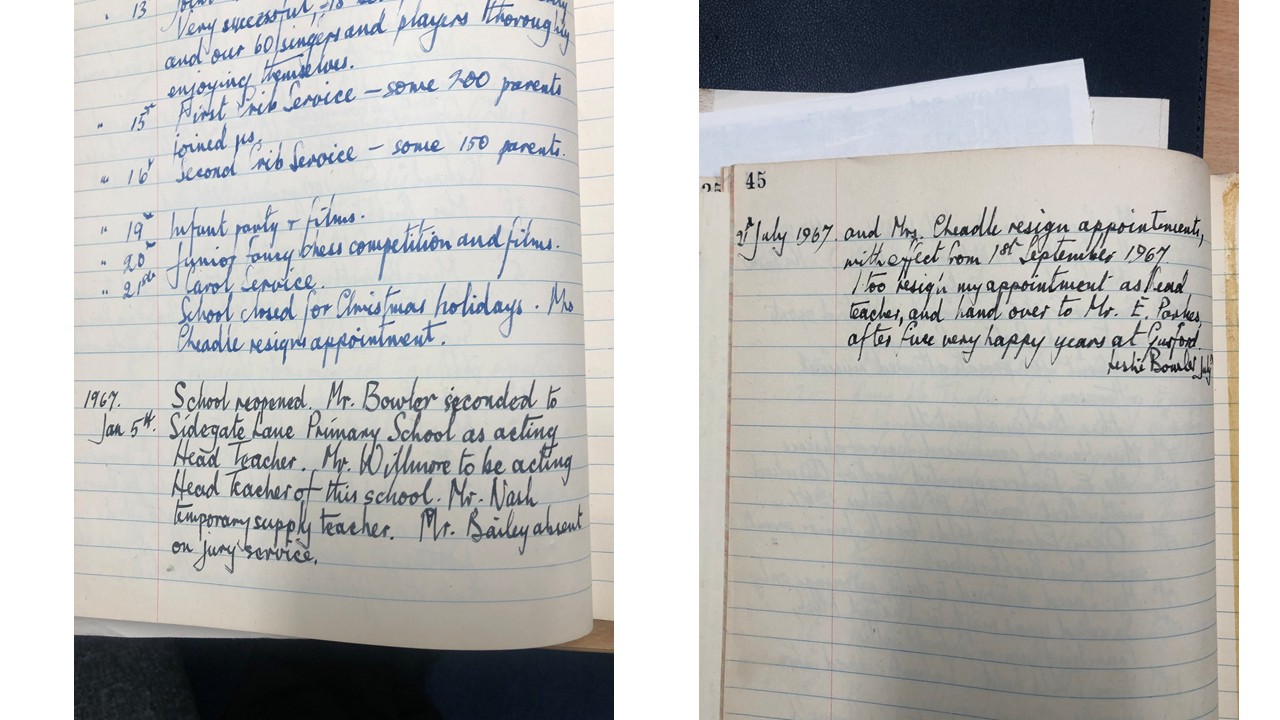 " 13
Very successful
and our 60 singers and players thoroughly
enjoying themselves.
" 15th First Crib Service – some 200 parents
joined us.
" 16th Second Crib Service – some 150 parents.
" 19th Infant party + films.
" 20th Junior fancy dress competition and films.
" 21st Carol Service.
School closed for Christmas holidays. Mrs
Cheadle resigns appointment.
1967.
School reopened. Mr. Bowler seconded to
Jan 5th. Sidegate Lane Primary School as acting
Head Teacher. Mr. Willmore to be acting
Head Teacher of this school. Mr. Nash
temporary supply teacher. Mr. Bailey absent
on jury service.
45
21st July 1967. and Mrs. Cheadle resign appointments,
with effect from 1st September 1967.
I too resign my appointment as Head
teacher, and hand over to Mr. E. Parkes,
after five very happy years at Gusford.
Leslie Bowler July